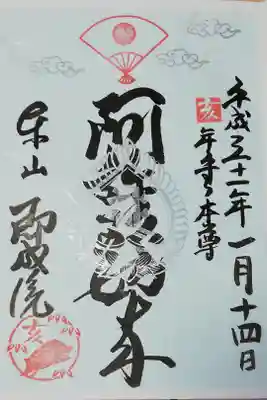 平成三十一年一月十四日
亥年守り本尊
阿弥陀如来
泉山 即成院
亥